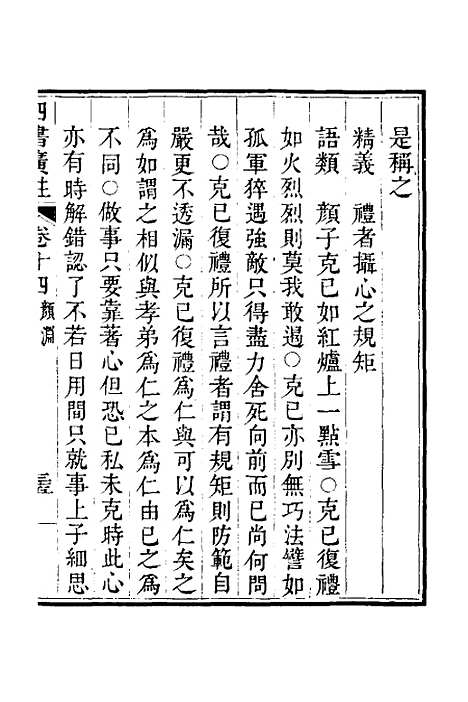 是稱之
精義　禮者攝心之規矩
語類　顏子克已如紅爐上一點雪○克已復禮
如火烈烈則莫我敢遏○克已亦別無巧法譬如
孤軍猝遇強敵只得盡力舍死向前而已尚何問
哉○克已復禮所以言禮者謂有規矩則防範自
嚴更不透漏○克已復禮爲仁與可以爲仁矣之
爲如謂之相似與孝弟爲仁之本爲仁由已之爲
不同○做事只要靠著心但恐已私未克時此心
亦有時解錯認了不若日用間只就事上子細思
四書廣註　卷十四　顏淵